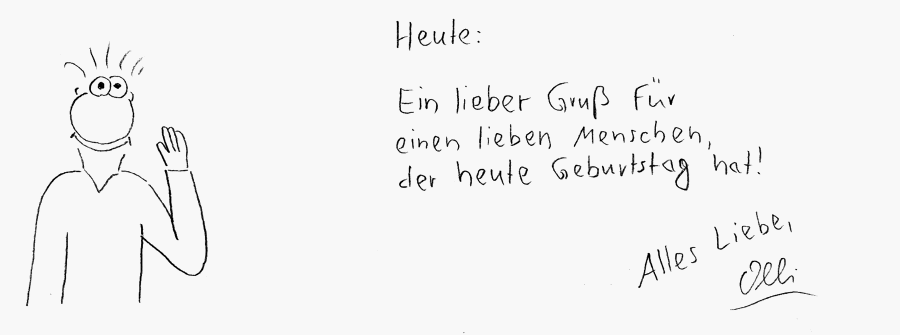 Heute:
Ein lieber Gruß für
einen lieben Menschen,
der heute Geburtstag hat!
Alles Liebe,
Olli